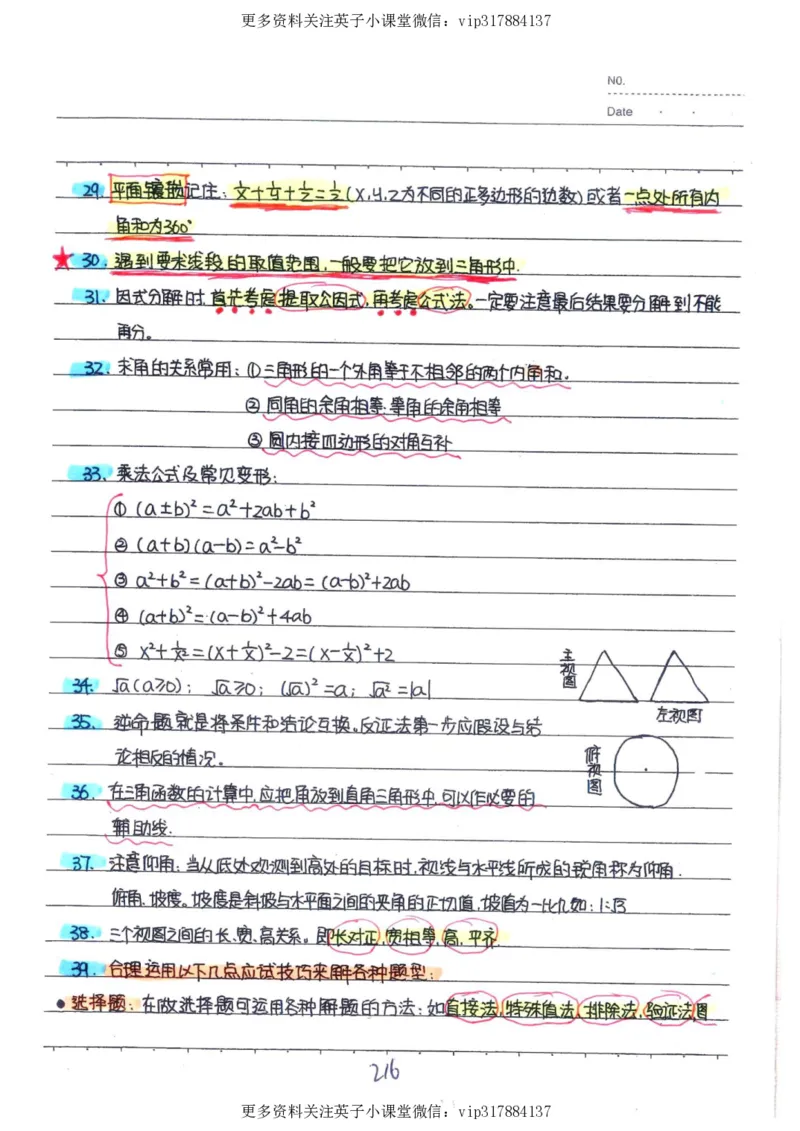 更多资料关注英子小课堂微信：vip317884137
NO.
Date
29. 平面镶嵌记住：1/x+1/y+1/z=1/2(x,y,z为不同的正多边形的边数)或者一点处所有内
角和为360°
★30. 遇到要求线段的取值范围,一般要把它放到三角形中.
31. 因式分解时,首先考虑提取公因式,再考虑公式法。一定要注意最后结果要分解到不能
再分。
32. 求角的关系常用：①三角形的一个外角等于不相邻的两个内角和.
②同角的余角相等.等角的余角相等
③圆内接四边形的对角互补
33. 乘法公式及常见变形：
①(a±b)²=a²+2ab+b²
②(a+b)(a-b)=a²-b²
③a²+b²=(a+b)²-2ab=(a-b)²+2ab
④(a+b)²=(a-b)²+4ab
⑤x²+1/x²=(x+1/x)²-2=(x-1/x)²+2
主视图
左视图
34. √a(a≥0)；√a≥0；(√a)²=a；√a²=|a|
35. 逆命题就是将条件和结论互换。反证法第一步应假设与结
论相反的情况。
俯视图
36. 在三角函数的计算中,应把角放到直角三角形中,可以作必要的
辅助线.
37. 注意仰角：当从低处观测到高处的目标时,视线与水平线所成的锐角称为仰角.
俯角、坡度。坡度是斜坡与水平面之间的夹角的正切值,坡值为一比几如：1:√3
38. 三个视图之间的长、宽、高关系。即长对正,宽相等,高,平齐
39. 合理运用以下几点应试技巧来解各种题型：
●选择题：在做选择题可运用各种解题的方法：如直接法,特殊值法,排除法,验证法,图
216
更多资料关注英子小课堂微信：vip317884137